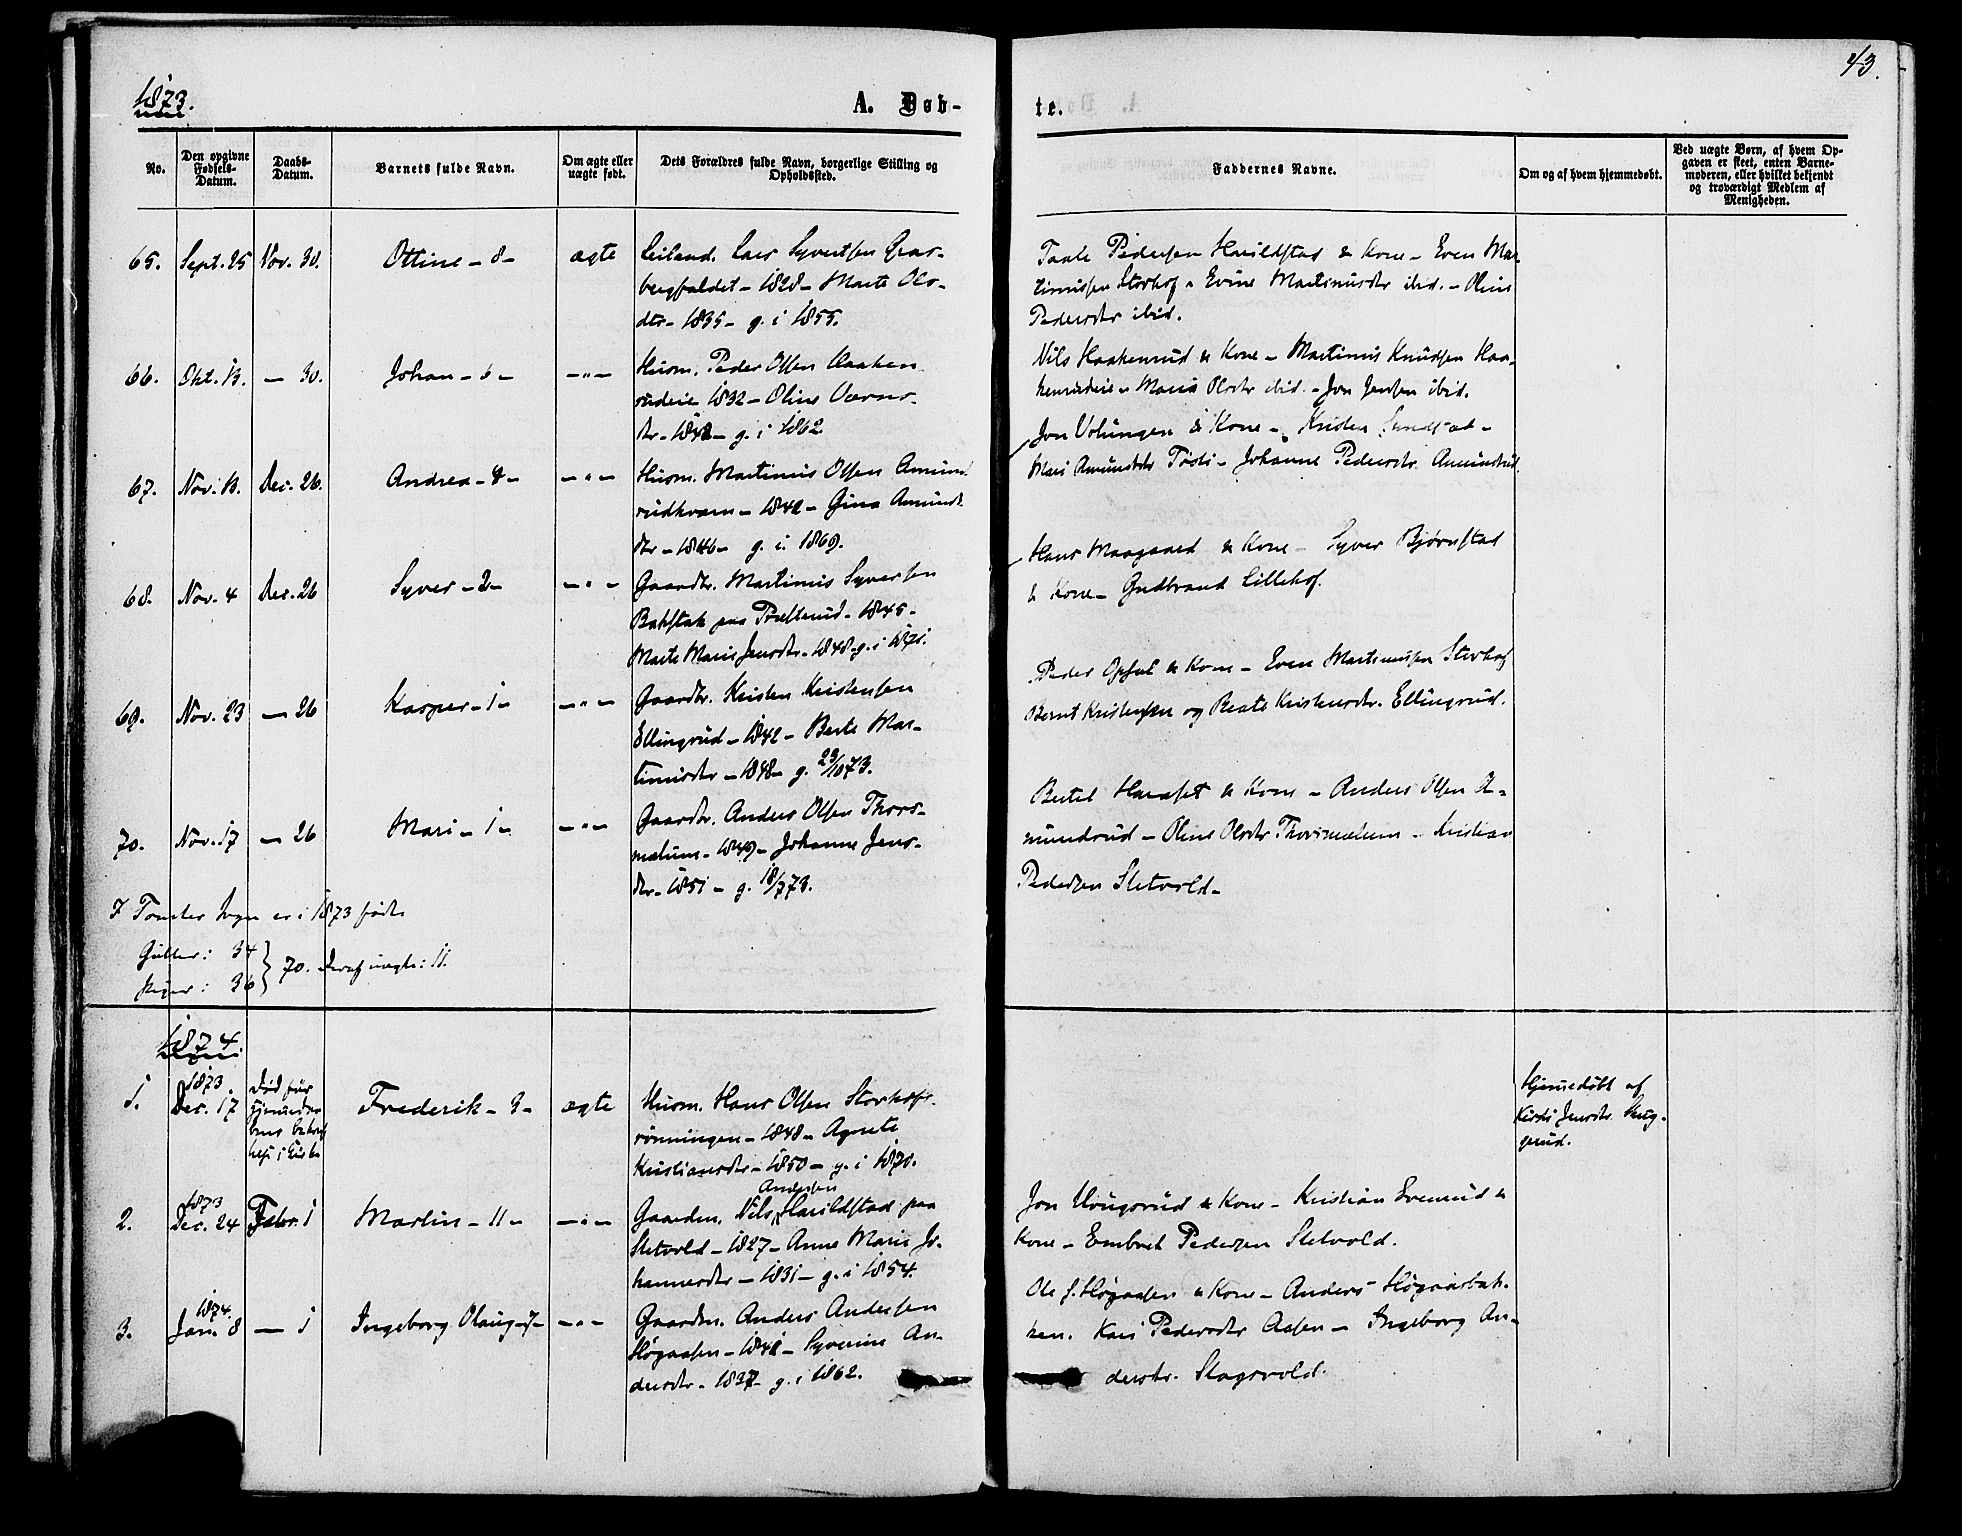 1873.
43.
A. Døb-
te.
No.
Den opgivne Fødsels-Datum.
Daabs-Datum.
Barnets fulde Navn.
Om ægte eller uægte født.
Dets Forældres fulde Navn, borgerlige Stilling og Opholdssted.
Faddernes Navne.
Om og af hvem hjemmedøbt.
Ved uægte Børn, af hvem Op-
gaven er skeet, enten Barne-
moderen, eller hvilket bekjendt
og troværdigt Medlem af
Menigheden.
65. Sept. 25 Nov. 30. Ottine - 8 - ægte
Leiland. Lars Syvertsen
1828 - Marte Ols-
dtr - 1835 - g. i 1855.
Pedersen Harildstad & Kone - Even Mar-
tinussen Storhof - Evine Martinusdtr ibid. - Oline
Pedersdtr ibid.
66. Okt. 13. - 30. Johan - 6 - - " -
Husm. Peder Olsen Haaken-
rudeie 1832 - Oline
dtr - 1842 - g. i 1862.
Nils Haakenrud & Kone - Martinus Knudsen Haa-
kenrudeie - Maria Olsdtr ibid. - Jon Jensen ibid.
67. Nov. 13. Dec. 26. Andrea - 4 - - " -
Husm. Martinus Olsen Amund-
rudkvern - 1842 - Gina Amunds-
dtr - 1846 - g. i. 1869.
Jon Volungen & Kone - Kristen
Mari Amundsdtr - Johanne Pedersdtr. Amundrud
68. Nov. 4 Dec. 26 Syver - 2 - - " -
Gaardbr. Martinus Syversen
Bakstad paa Præstrud - 1845 -
Marte Marie Jensdtr. - 1848 - g. i 1871.
Hans Maagaard & Kone - Syver Bjørnstad
& Kone - Gudbrand Lillehof.
69. Nov. 23 - 26 Kasper - 1 - - " -
Gaardbr. Kristen Kristensen
Ellingsrud - 1842 - Berte Mar-
tinusdtr - 1848 - g. 23/10 73.
Peder Opsal & Kone - Even Martinussen Storhof
Bernt Kristensen og Beate Kristensdtr. Ellingsrud.
70. Nov. 17 - 26 Mari - 1 - - " -
Gaardbr. Anders Olsen Thors-
mælum - 1849 - Johanne Jens-
dtr - 1851 - g. 18/7 73.
Bertel Haraset & Kone - Anders Olsen A-
mundrud - Oline Olsdtr Thorsmælum - Kristian
Pedersen Sletvold -
I Sogn er i 1873 fødte
Gutter: 34
Piger: 36
70. Deraf uægte: 11.
1874.
1. 1873. Dec. 17 Død før
Frederik - 3 - ægte
Husm. Hans Olsen Storhofs-
rønningen - 1848 - Agnete
Kristiansdtr - 1850 - g. i 1870.
Hjemmedøbt af
Kirsti Jensdtr. Skug-
gerud.
2. 1873 Dec. 24 Febr. 1 Martin - 11 - - " -
Andersen
Gaardm. Nils Harildstad paa
Sletvold - 1827 - Anne Marie Jo-
hannesdtr - 1831 - g. i 1854.
Jon Hougsrud & Kone - Kristian Evenrud &
Kone - Embret Pedersen Sletvold.
3. 1874. Jan. 8 - 1 Ingeborg Olaug - 7 - - " -
Gaardm. Anders Andersen
Høgaasen - 1841 - Syverine An-
dersdtr - 1837 - g. i 1862.
Ole J. Høgaasen & Kone - Anders Høgaasbak-
ken. Kari Pedersdtr Aasen - Ingeborg An-
dersdtr. Slagsvold.